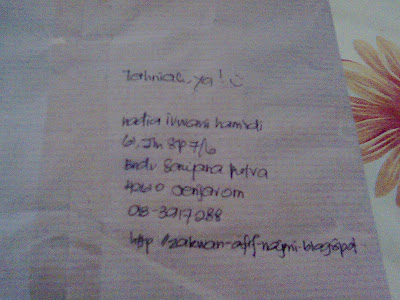 Tahniah ya! :)
nadia izwani hamidi
61, Jln SP 7/6
Bndr Saujana Putra
42610 Jenjarom
03-3917088
http://zakwam-afif-najmi-blogspot